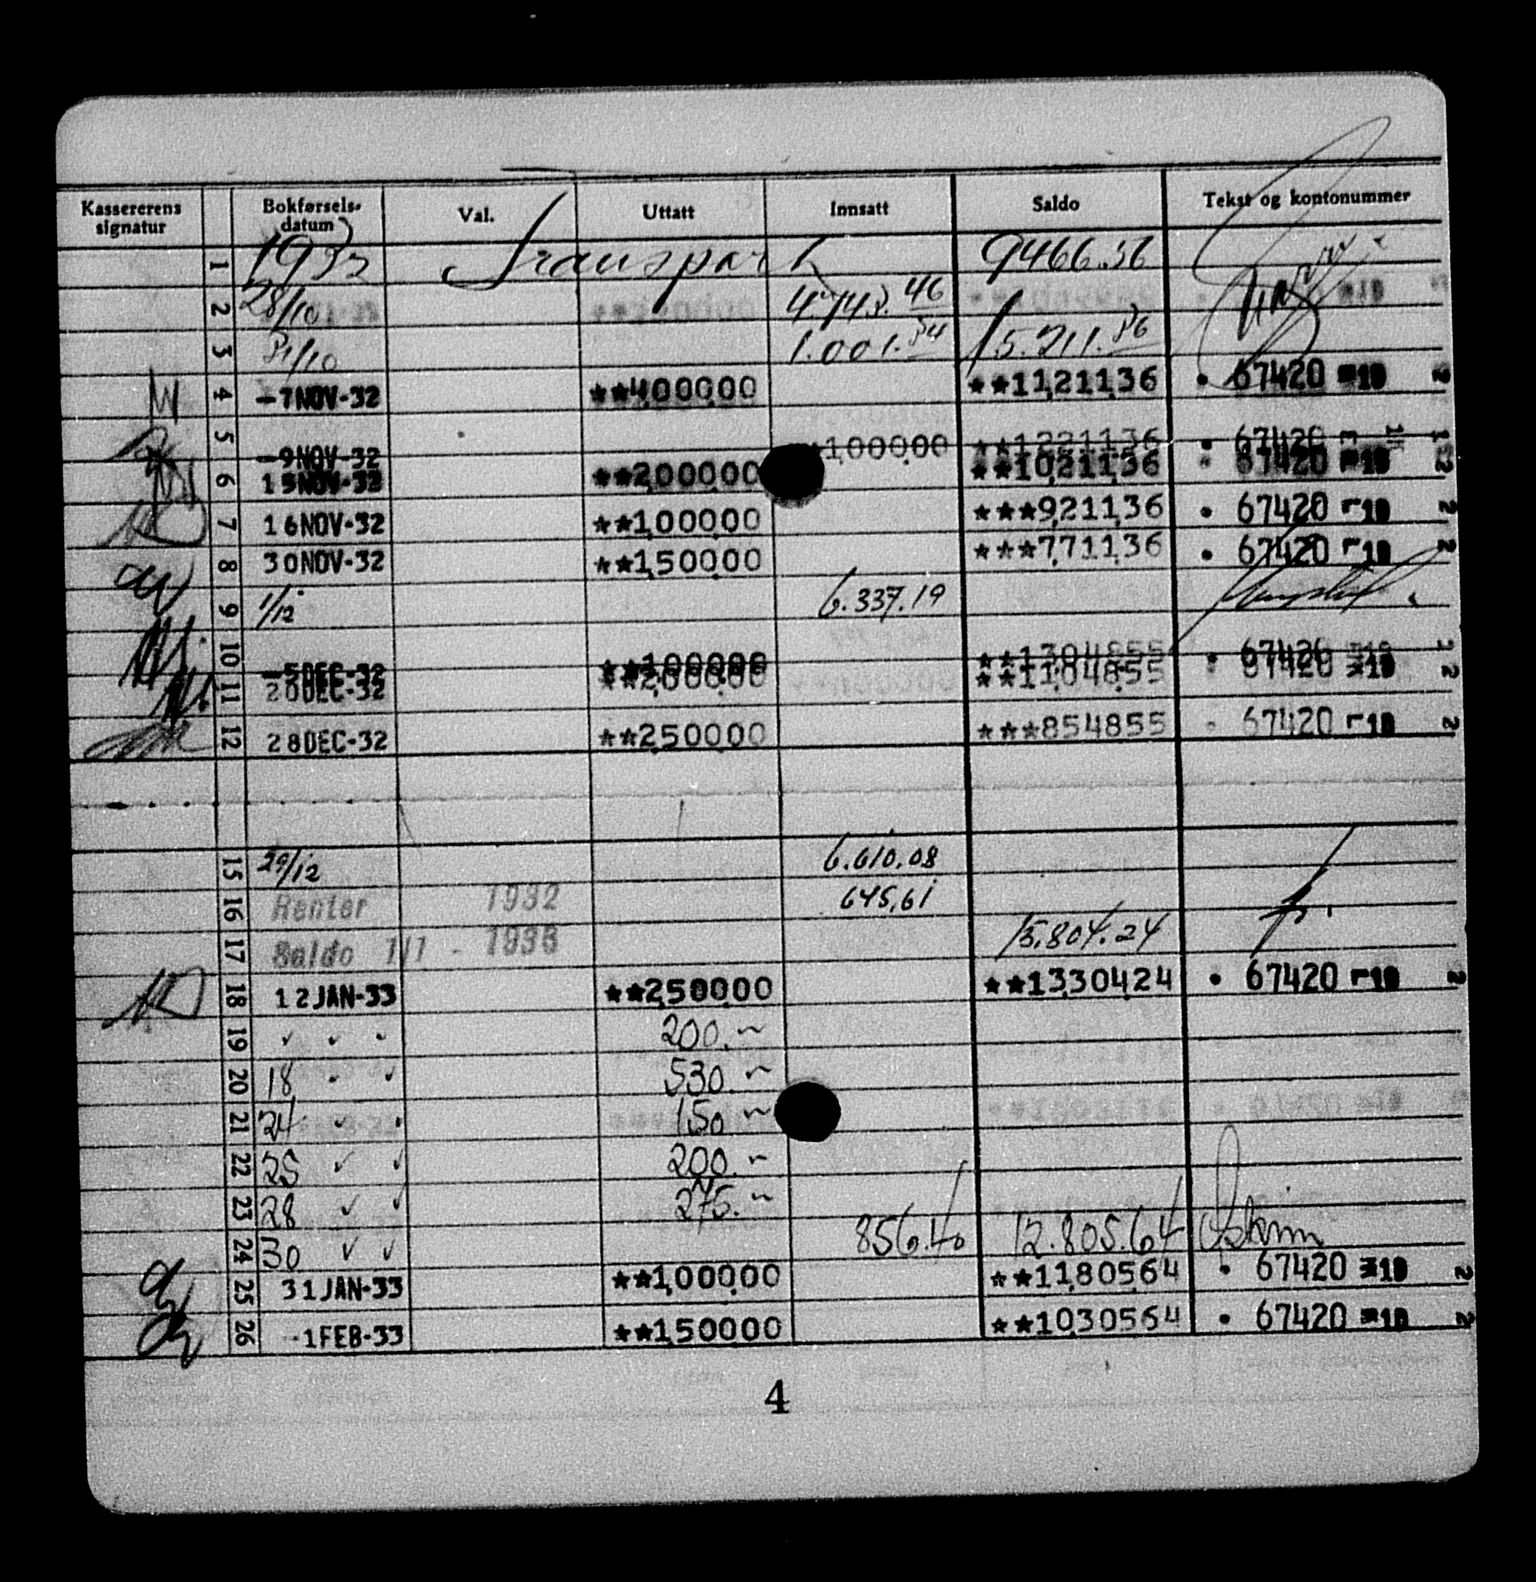 Kassererens signatur Bokførsels-datum Val. Uttatt Innsatt Saldo Tekst og kontonummer
1 1932 Transport 9466.56
2 28/10 4743.46
3 31/10 1.001.34 15.211.36
4 -7NOV-32 **4,000,00 **11,211,36 • 67420 2
5 -9NOV-32 1,000,00 **12,211,36 • 67420
6 15NOV-32 **2,000,00 **10,211,36 • 67420 2
7 16NOV-32 **1,000,00 ***9,211,36 • 67420 2
8 30NOV-32 **1,500,00 ***7,711,36 • 67420 2
9 1/12 6.337.19
10 -5DEC-32 **1,000,00 **13,048,55 • 67420 2
11 20DEC-32 **2,000,00 **11,048,55 67420 2
12 28DEC-32 **2,500,00 ***8,548,55 • 67420 2
15 29/12 6.610.08
16 Renter 1932 645,61
17 Saldo 1/1 - 1933 15.804.24
18 12JAN-33 **2,500,00 **13,304,24 • 67420 2
19 200.-
20 18 530.-
21 24 150 -
22 25 200.-
23 28 275.-
24 30 856.40 12.805.64
25 31JAN-33 **1,000,00 **11,805,64 • 67420 2
26 -1FEB-33 **1,500,00 **10,305,64 • 67420 2
4